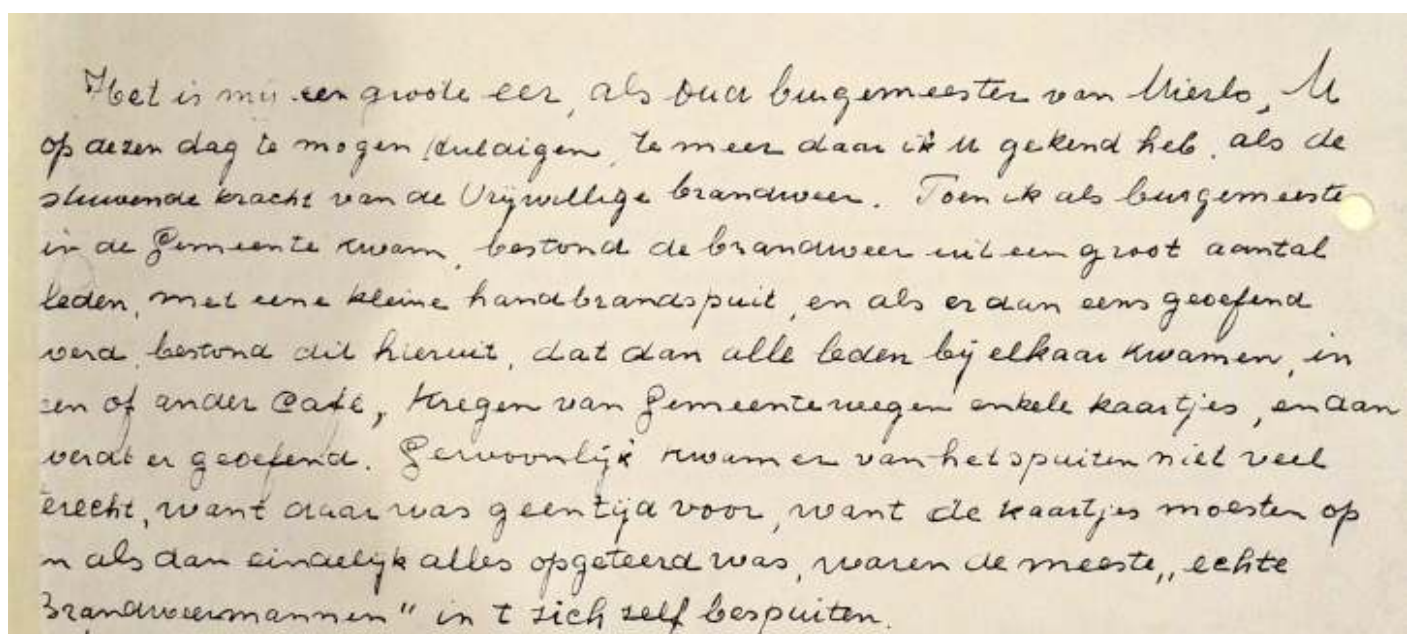 Het is mij een groote eer, als oud burgemeester van Mierlo, U
op dezen dag te mogen huldigen, te meer daar ik U gekend heb, als de
stuwende kracht van de Vrijwillige brandweer. Toen ik als burgemeeste
in de Gemeente kwam, bestond de brandweer uit een groot aantal
leden, met eene kleine handbrandspuit, en als er dan eens geoefend
werd, bestond dit hieruit, dat dan alle leden bij elkaar kwamen, in
een of ander Café, kregen van Gemeentewegen enkele kaartjes, en dan
werdt er geoefend. Gewoonlijk kwam er van het spuiten niet veel
erecht, want daar was geen tijd voor, want de kaartjes moesten op
n als dan eindelijk alles opgeteerd was, waren de meeste „echte
Brandweermannen" in t zich zelf bespuiten.